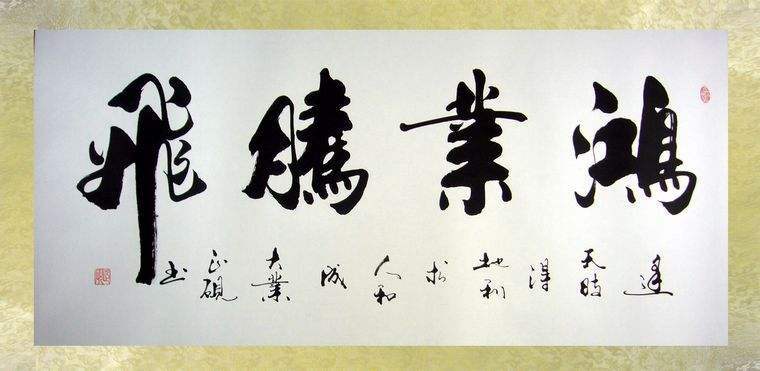 鴻業騰飛
逢天時得地利求人和成大業正硯书